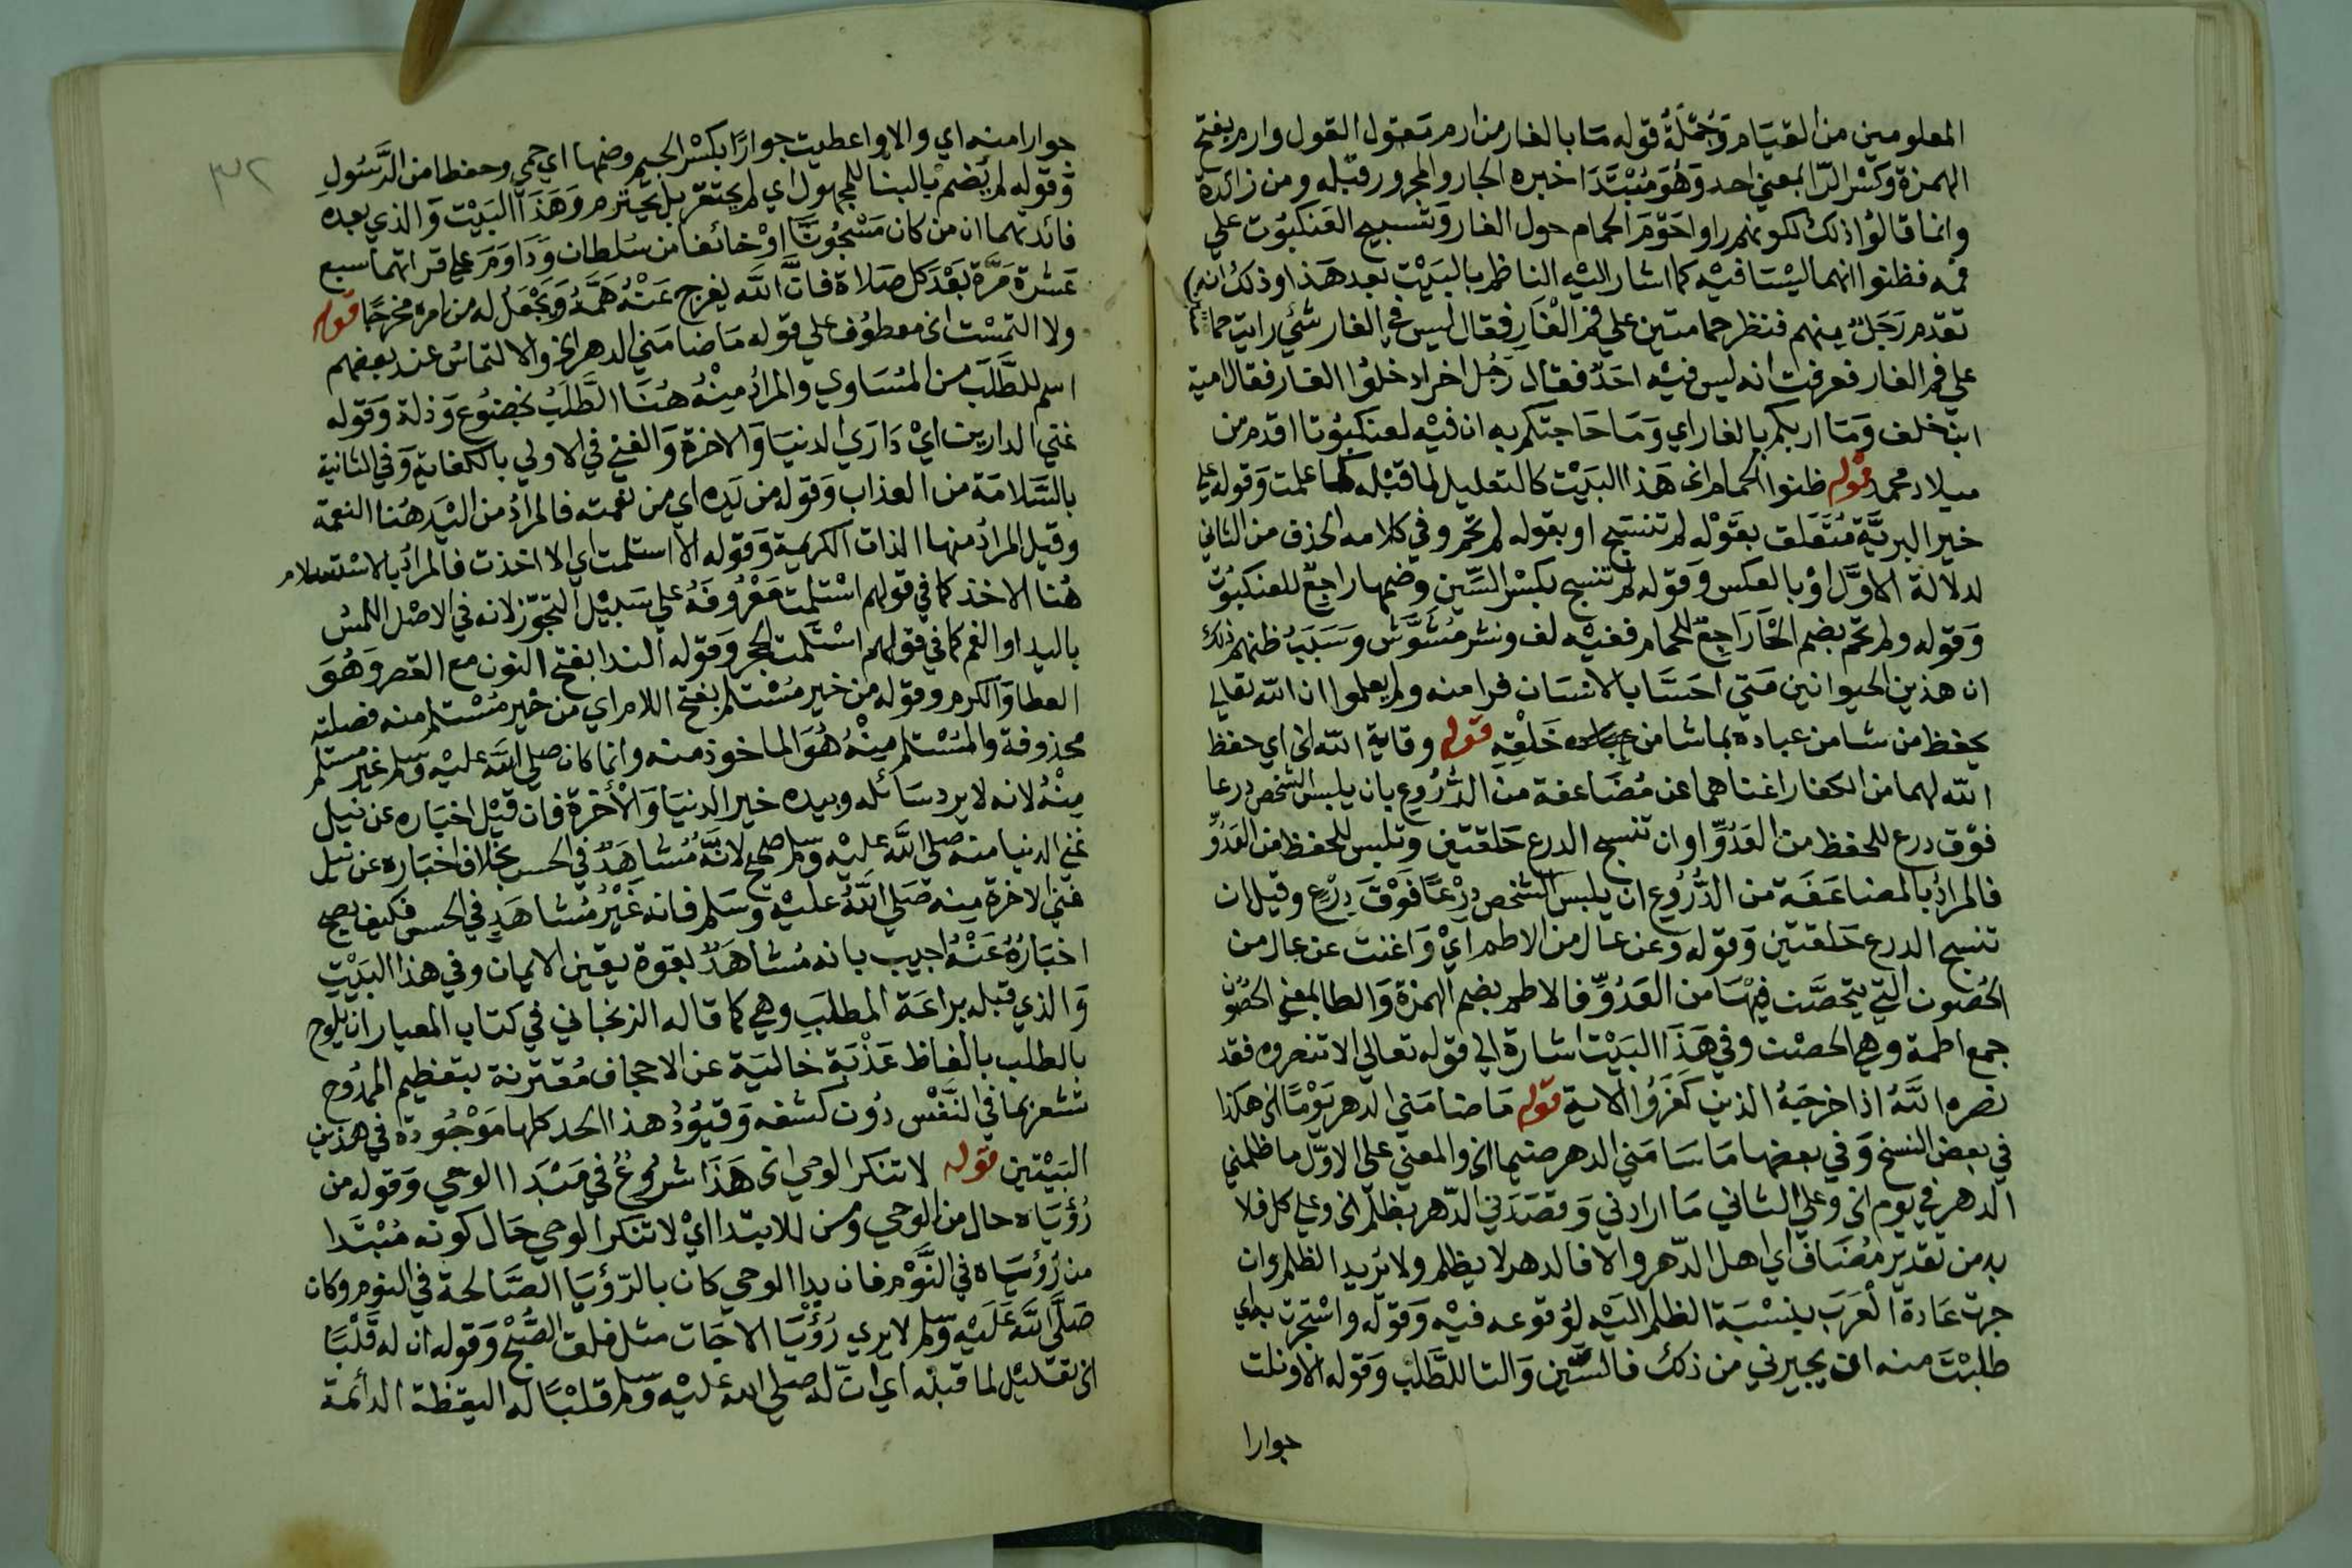 المعلومين من المقيام وَجُمْلَةُ قوله مَا بالغار من ارم مَعْول القول وارم بفتح
الهمزة وكسْر الرّا بمعني احد وَهُوَ مُبْتَدَا خبره الجار والمجرور قبْله ومن زائدة
وانما قالوُا ذلك لكونهم راوا حَوْمَ الحمام حول الغار وَتسبيح العَنكبُوت علي
فمه فظنوا انهما ليْسَا فيْه كما اشار اليْه الناظم بالبَيْت بعد هَذا وذلك انه
تقدم رَجَلٌ منهم فنظر حمامتين علي فم الْغَارِ فقال ليس في الغار شئي رايت حما
علي فم الغار فعرفت انه ليس فيْه احَدٌ فقال رَجُل اخر ادخلوُا الغار فقال امية
ابن خلف وَمَا اربكم بالغار اي وَمَا حَاجتكم به ان فيْه لعنكبُوتا اقدم من
ميلاد محمد قوله ظنوا الحمام الخ هَذا البَيْت كالتعليل لما قبْله كما علمت وَقوله علي
خير البريَّة مُتَعَلق بقَوْله لم تنسَج او بقوله لم تحم وفي كلامه الحذف من الثاني
لدلالة الاوَّل اوْ بالعكس وَقوله لم تنسج بكسْر السِّين وضمها راجعٌ للعنكبُوت
وَقوله ولم تحم بضم الحَا رَاجِعٌ للحمام ففيْه لف ونشر مُشَوَّش وَسَبَبُ ظنهم ذلك
ان هذين الحيوانين مَتي احَسَّا بالانسَان فرا منه ولم يعلموا ان الله تعالي
يحفظ من شا من عباده بما شا من خَلْقِهِ قوله وقاية الله الخ اي حفظ
الله لهما من الكفار اغناهما عن مُضَاعفة منَ الدُّرُوعِ بان يلبس الشخص درعا
فوْق درع للحفظ من العَدُوِّ او ان تنسج الدرع حَلقتين وتلبس للحفظ من العَدُوِّ
فالمرادُ بالمضاعَفَة من الدُّرُوع ان يلبسَ الشخص دِرْعًا فَوْقَ دِرْعٍ وقيل ان
تنسج الدرع حَلقتين وَقوله وَعن عال من الاطم ايْ وَاغنت عن عال من
الحُصون التي يتحصَّن فيْهَا من العَدُوِّ فالاطم بضم الهمزة وَالطا بمعني الحصُون
جمع اطمة وهي الحصْن وفي هَذَا البَيْت اشارة الي قوله تعالي الا تنصروه فقد
نصره اللَّهُ اذ اخرجَهُ الذين كَفَرُوُا الاية قوله مَا ضامَني الدهر يَوْمًا الخ هكذا
في بعض النسخ وَفي بعضها مَا سَامَني الدهر ضيما الخ والمعني علي الاوّل ما ظلمني
الدهر في يوم الخ وعلي الثاني مَا ارادني وَقصَدَني الدّهر بظلم الخ وعلي كل فلا
بد من تقدير مُضَاف اي اهل الدّهر والا فالدهر لا يظلم ولا يُريد الظلم وان
جرت عَادة الْعَرَبَ بنسْبَة الظلم اليْه لوُقوعه فيْه وَقوله واسْتجرت به اي
طلبْتَ منه ان يجيرني من ذلك فالسِّين وَالتا للطَّلَب وَقوله الا ونلت
جوارا
٣٢
جوارا منه اي والا واعطيت جوارًا بكسْر الجيم وضمها اي حمي وحفظا من الرَّسُول
وَقوله لم يُضم بالبنا للمجهول اي لم يحتقر بل يحترم وَهَذَا البَيْت وَالذي بعده
فائدتهما ان من كان مَسْجُونًا اوْ خائفا من سُلطان وَدَاوَمَ علي قراتهما سبع
عَشْرة مَرَّة بَعْدَ كل صَلاة فانَّ اللَّه يفرج عَنْهُ هَمَّهُ وَيَجْعَلُ له من امره مخرجًا قوله
ولا التمسْت الخ معطوُف علي قوله مَا ضامَني الدهر الخ والالتماسُ عند بعضهم
اسم للطَّلَبَ من المُسَاوي والمرادُ مِنْهُ هُنَا الطَّلَبُ بخضوُع وَذلة وَقوله
غني الدارين ايْ دَارَي الدنيَا وَالاخرة وَالغني في الاولي بالكفاية وَفي الثانية
بالسَّلامَة من العذاب وَقوله من يَده اي من نعمته فالمرادُ من اليَد هُنا النعمة
وقيل المرادُ منها الذات الكريمة وَقوله الا استلمت اي الا اخذت فالمرادُ بالاسْتلام
هُنا الاخذ كما في قولهم اسْتلمت مَعْرُوفَهُ علي سَبيْل التجوّز لانه في الاصْل اللمسُ
باليد او الفم كما في قولهم اسْتَلمت الحجَر وَقوله الندا بفتح النون مع القصر وَهُوَ
العطا وَالكرم وقوله من خير مُسْتلم بفتح اللام اي من خْير مُسْتلم منه فصلته
محذوفة والمُسْتلم مِنْهُ هُوَ الماخوذ منه وانما كان صلي اللَّه عليْه وَسَلم غير مستلم
مِنْهُ لانه لا يرد سَائله وبيده خير الدنيَا وَالْاخرة فان قيْل اخبَاره عن نيل
غني الدنيا منه صلي اللَّه عليْه وسلم صحيح لانَّهُ مُشاهَدٌ في الحسِ بخلاف اخبَاره عن نيل
غني الاخرة مِنه صَلي اللَّهُ عليْه وسَلم فانه غَيْرُ مُشاهَدٍ في الحس فكيف يصح
اخبَارُهُ عَنْهُ اجيب بانه مُشاهَدٌ بقوة يقين الايمان وفي هذا البَيْتِ
وَالذي قبله براعَة المطلَبَ وهي كما قاله الزنجاني في كتاب المعيار ان يلوح
بالطلب بالفاظ عَذْبَة خاليَة عن الاجحاف مُقترنة بتعظيم الممدُوح
تشعر بما في النَّفْس دُون كشفه وَقيُودُ هذا الحد كلها مَوْجُودة في هذين
البَيْتين قوله لا تنكر الوحي الخ هَذَا شروُعٌ في مَبْدَا الوحي وَقوله من
رُؤيَاه حال من الوحي ومن للابتدا ايْ لا تنكر الوحي حَال كونه مُبْتَدا
من رُؤيَاه في النَّوْم فان بدا الوحي كان بالرّؤيَا الصَّالحة في النوم وكان
صَلَّي اللَّه عَلَيْه وسلم لا يري رُؤْيَا الا جَات مثل فلق الصُّبْح وَقوله ان له قَلْبًا
الخ تعْليْل لما قبْله اي انّ له صلي الله عليْه وَسَلم قلْبًا له اليقظة الدائمة